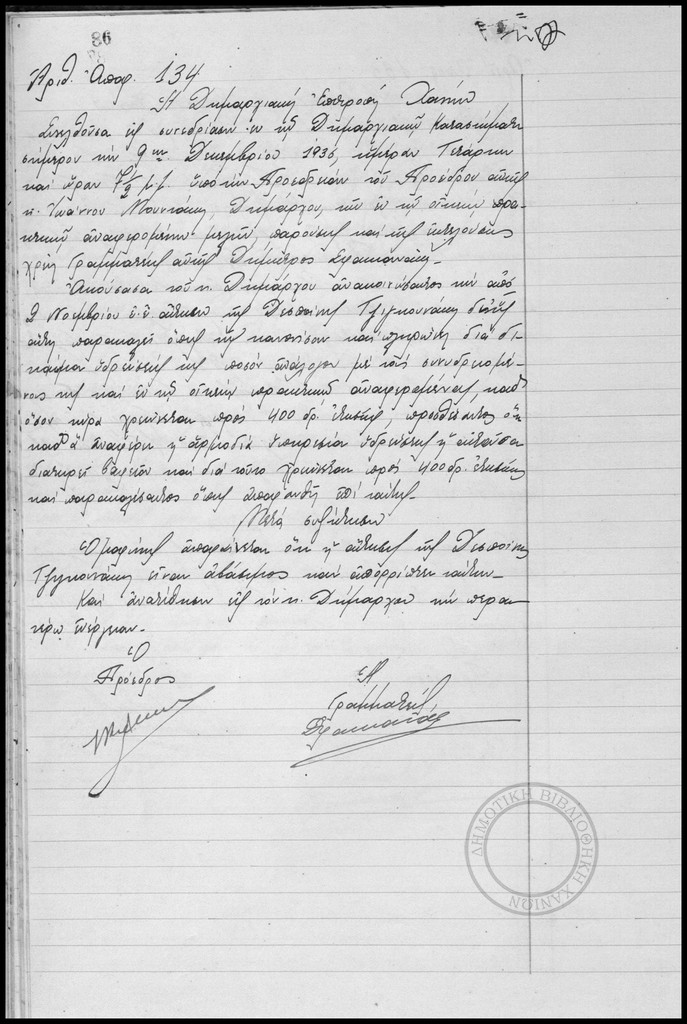 86
Ἀριθ. Ἀποφ. 134
Ἡ Δημαρχιακή Ἐπιτροπή Χανίων
Συνελθοῦσα εἰς συνεδρίασιν ἐν τῷ Δημαρχιακῷ Καταστήματι
σήμερον τήν 9ην Δεκεμβρίου 1936, ἡμέραν Τετάρτην
καί ὥραν 7½ μ.μ. ὑπό τήν Προεδρείαν τοῦ Προέδρου αὐτῆς
κ. Ἰωάννου Μουντάκη, Δημάρχου, τῶν ἐν τῷ οἰκείῳ πρα-
κτικῷ ἀναφερομένων μελῶν, παρούσης καί τῆς ἐκτελούσης
χρέη Γραμματέως αὐτῆς Δημητρας Σφακιανάκη.-
Ἀκούσασα τοῦ κ. Δημάρχου ἀνακοινώσαντος τήν ἀπό
2 Νοεμβρίου ἐ.ἔ. αἴτησιν τῆς Δεσποίνης Τζιγκουνάκη δι' ἧς
αὕτη παρακαλεῖ ὅπως τῆς κανονίσουν καί πληρώνῃ διά δι-
καίωμα ὑδρεύσεώς της ποσόν ἀνάλογον μέ τούς συνυδρευομέ-
νους της καί ἐν τῷ οἰκείῳ πρακτικῷ ἀναφερομένους, καθ'
ὅσον τώρα χρεώνεται πρός 400 δρ. ἐτησίως, προσθέσαντος ὅτι
καθ' ἅ ἀναφέρει ἡ ἁρμοδία ὑπηρεσία ὑδρεύσεως ἡ αἰτοῦσα
διατηρεῖ καί διά τοῦτο χρεώνεται πρός 400 δρ. ἐτησίως
καί παρακαλέσαντος ὅπως ἀποφανθῇ ἐπί ταύτης.-
Μετά συζήτησιν
Ὁμοφώνως ἀποφαίνεται ὅτι ἡ αἴτησις τῆς Δεσποίνης
Τζιγκουνάκη εἶναι ἀβάσιμος καί ἀπορρίπτει ταύτην.-
Καί ἀνατίθησιν εἰς τόν κ. Δήμαρχον τήν περαι-
τέρω ἐνέργειαν.-
Ὁ
Πρόεδρος
Ἡ
Γραμματεύς
ΔΗΜΟΤΙΚΗ ΒΙΒΛΙΟΘΗΚΗ ΧΑΝΙΩΝ